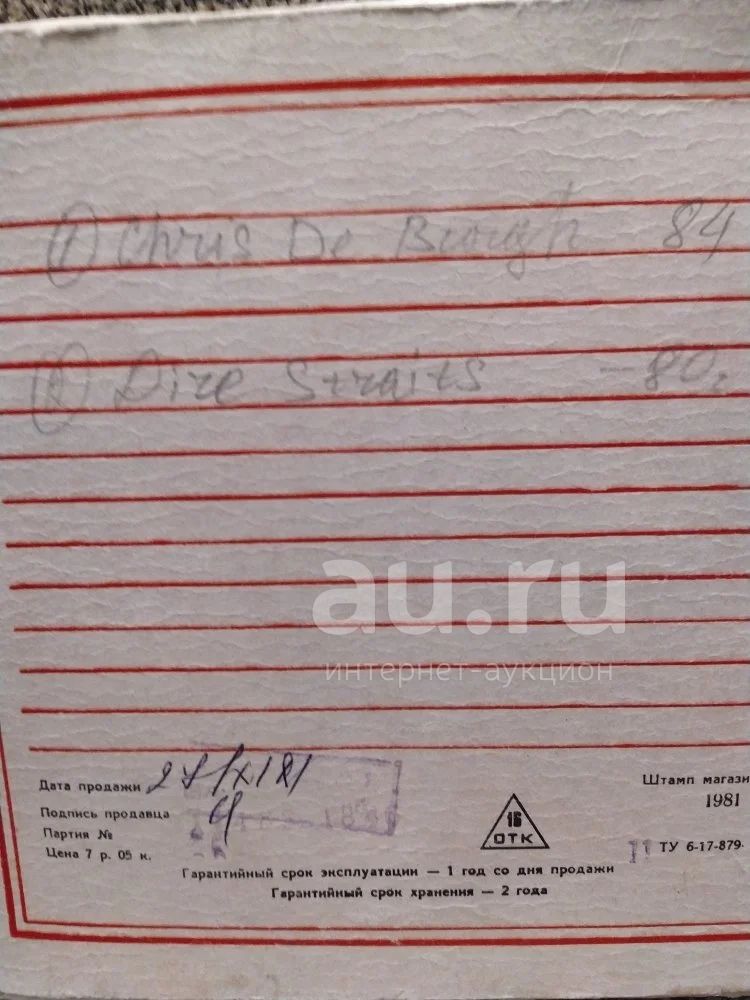 ① Chris De Burgh 84
② Dire Straits - 80
au.ru
интернет-аукцион
Дата продажи
Подпись продавца
Партия №
Цена 7 р. 05 к.
16
ОТК
Штамп магази
1981
11 ТУ 6-17-879-
Гарантийный срок эксплуатации — 1 год со дня продажи
Гарантийный срок хранения — 2 года